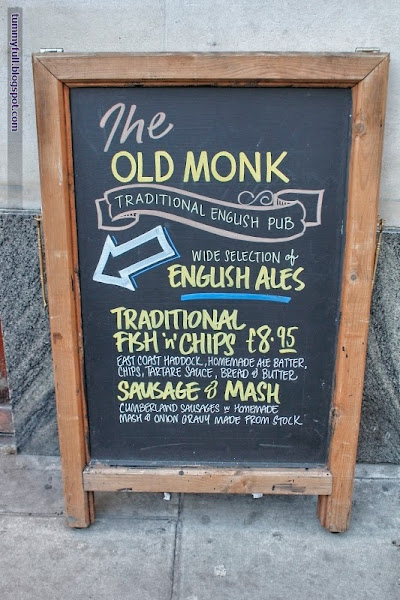 tummyfull.blogspot.com
The
OLD MONK
TRADITIONAL ENGLISH PUB
WIDE SELECTION of
ENGLISH ALES
TRADITIONAL
FISH 'n' CHIPS £8.95
EAST COAST HADDOCK, HOMEMADE ALE BATTER,
CHIPS, TARTARE SAUCE, BREAD & BUTTER
SAUSAGE & MASH
CUMBERLAND SAUSAGES w HOMEMADE
MASH & ONION GRAVY MADE FROM STOCK